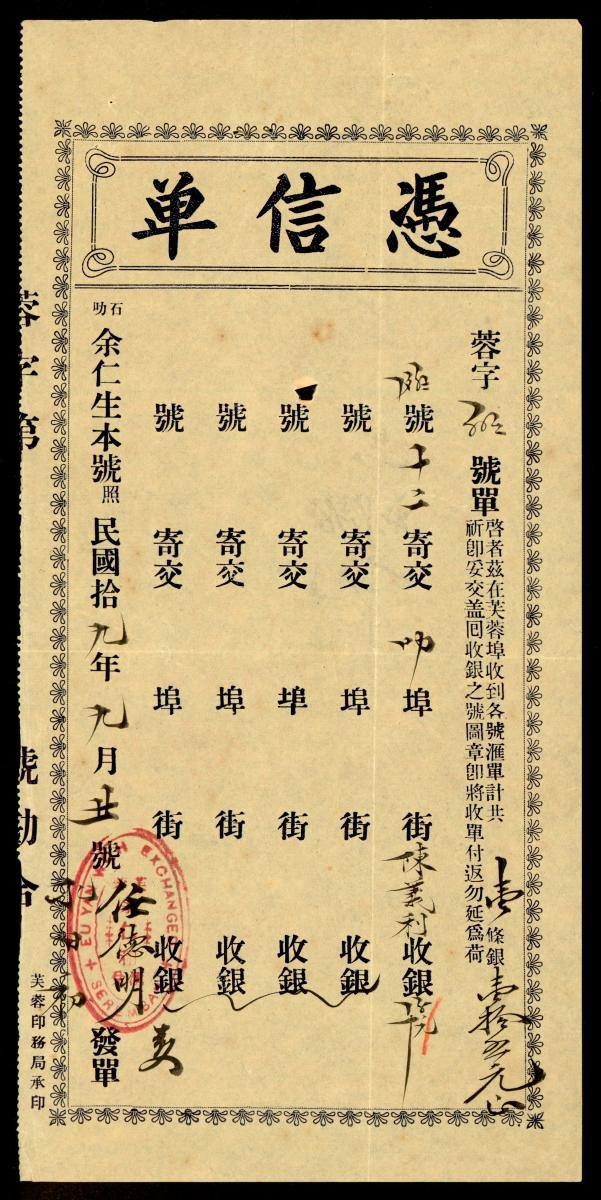 憑信单
蓉字 號單
啓者茲在芙蓉埠收到各號滙單計共 壹 條銀 壹拾五元正
祈即妥交盖囘收銀之號圖章即將收單付返勿延爲荷
號 十二 寄交 叻 埠 街 陳義利 收銀
號 寄交 埠 街 收銀
號 寄交 埠 街 收銀
號 寄交 埠 街 收銀
號 寄交 埠 街 收銀
石叻 余仁生本號照 民國拾九年九月廿號 任德明 發單
EU YAN EXCHANGE
SEREMBAN
蓉字第 號勘合
芙蓉印務局承印